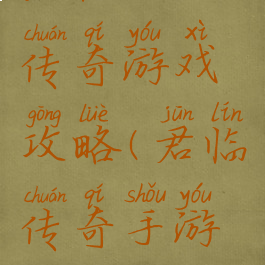 chuán qí yóu xì
传奇游戏
gōng lüè jūn lín
攻略(君临
chuán qí shǒu yóu
传奇手游